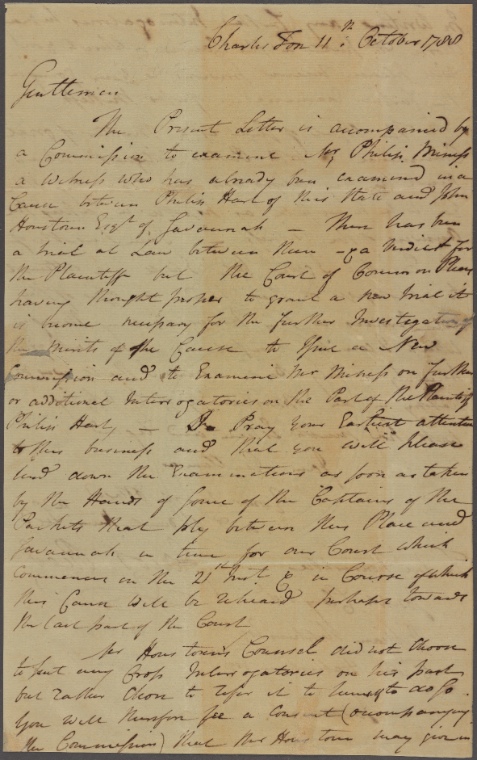 Charles Ton 11th October 1788
Gentlemen
The Present Letter is accompanied by
a Commission to examine Mr Philip Miness
a Witness who has already been examined in a
Cause between Philip Hart of this State and John
Houstoun Esqr of Savannah — There has been
a trial at Law between them — & a Verdict for
the Plaintiff but the Court of Common Pleas
having thought proper to grant a new trial it
is become necessary for the further Investigation of
the Merits of the Cause to Issue a New
Commission and to Examine Mr Miness on further
or additional Interrogatories on the Part of the Plaintiff
Philip Hart, — I Pray your Earliest attention
to this business and that you will please
send down the Examinations as soon as taken
by the Hands of some of the Captains of the
Packets that ply between this Place and
Savannah in time for our Court which
Commences on the 21st Inst & in Course of which
this Cause will be reheard perhaps towards
the last part of the Court
Mr Houstoun's Counsel did not choose
to put any Cross Interrogatories on his part
but rather chose to refer it to himself to do so
You will therefore see a Consent (accompanying
the Commission) that Mr Houstoun may give in